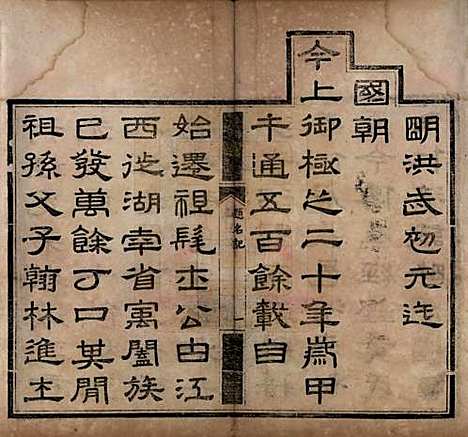 明洪武初元迄
國朝
今上御極之二十年歲甲
午通五百餘載自
題名記
一
始遷祖髦士公由江
西徙湖南省寓闔族
已發萬餘丁口其閒
祖孫父子翰林進士